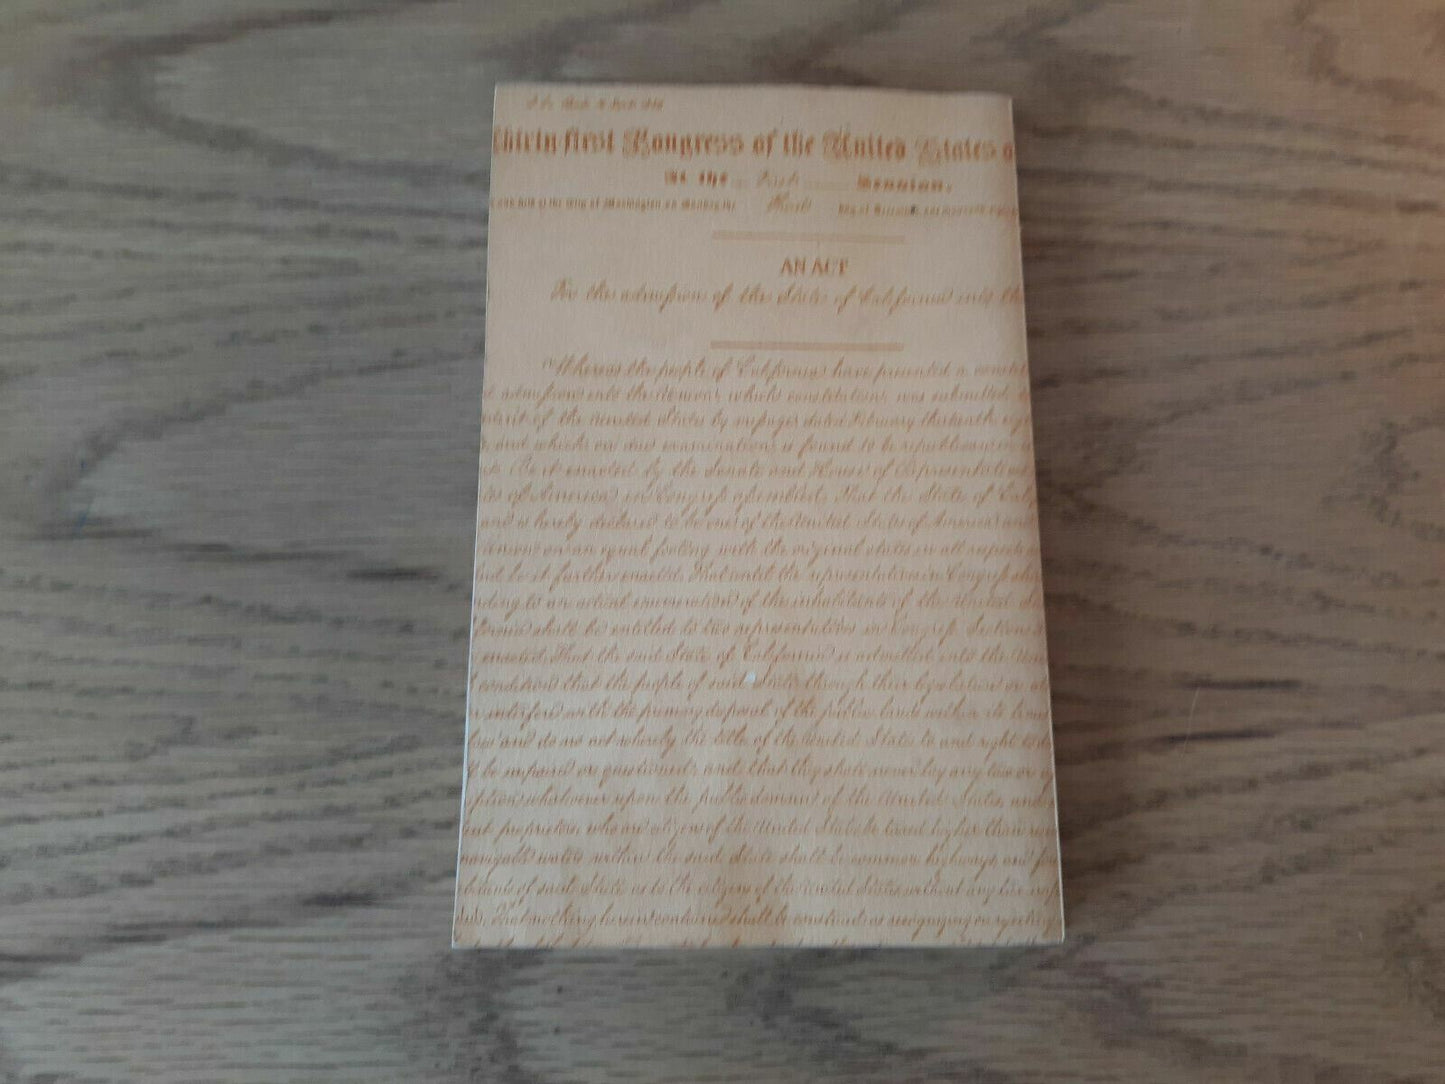 Thirty first Congress of the United States o
At the First Session,
held at the City of Washington, on Monday, the Third day of December,
AN ACT
For the admission of the State of California into the
Whereas the people of California have presented a constit
admission into the Union, which constitution was submitted
of the United States by message dated February thirteenth eig
and which on due examination is found to be republican in
Be it enacted by the Senate and House of Representatives
es of America in Congress assembled. That the State of Calif
and is hereby declared to be one of the United States of America and
Union on an equal footing with the original states in all respects
And be it further enacted, That until the representatives in Congress shall
ding to an actual enumeration of the inhabitants of the United Sta
fornia shall be entitled to two representatives in Congress. Section 3
enacted, That the said State of California is admitted into the Union
condition that the people of said State through their legislature or
interfere with the primary disposal of the public lands within its limits
law and do no act whereby the title of the United States to and right to
be impaired or questioned; and that they shall never lay any tax or
ption whatsoever upon the public domain of the United States, and
ent proprietors who are citizens of the United States be taxed higher than resi
navigable waters within the said State shall be common highways, and for
bitants of said State as to the citizens of the United States, without any tax imp
That nothing herein contained shall be construed as recognizing or rejecting